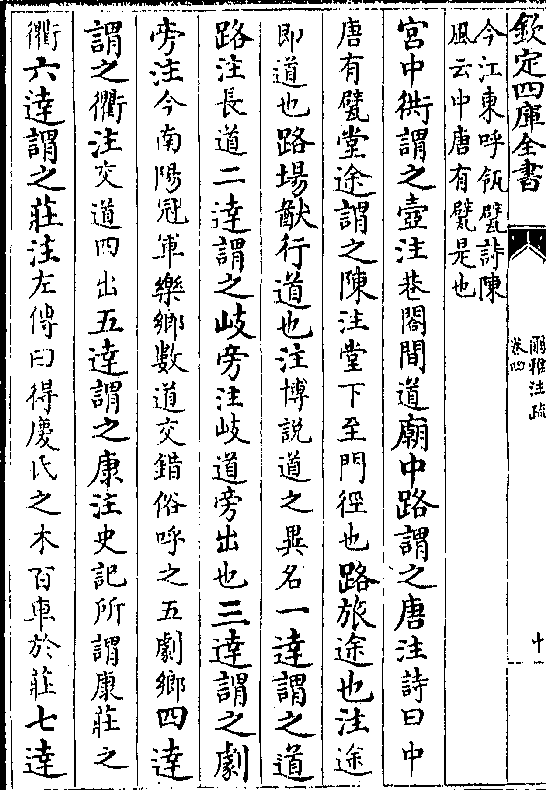 欽定四庫全書
爾雅注疏
卷四
十
今江東呼瓴甓詩陳
風云中唐有甓是也
宮中衖謂之壼注巷閤間道廟中路謂之唐注詩曰中
唐有甓堂途謂之陳注堂下至門徑也路旅途也注途
即道也路場猷行道也注博説道之異名一達謂之道
路注長道二達謂之岐旁注岐道旁出也三達謂之劇
旁注今南陽冠軍樂鄉數道交錯俗呼之五劇鄉四達
謂之衢注交道四出五達謂之康注史記所謂康莊之
衢六達謂之莊注左傳曰得慶氏之木百車於莊七達